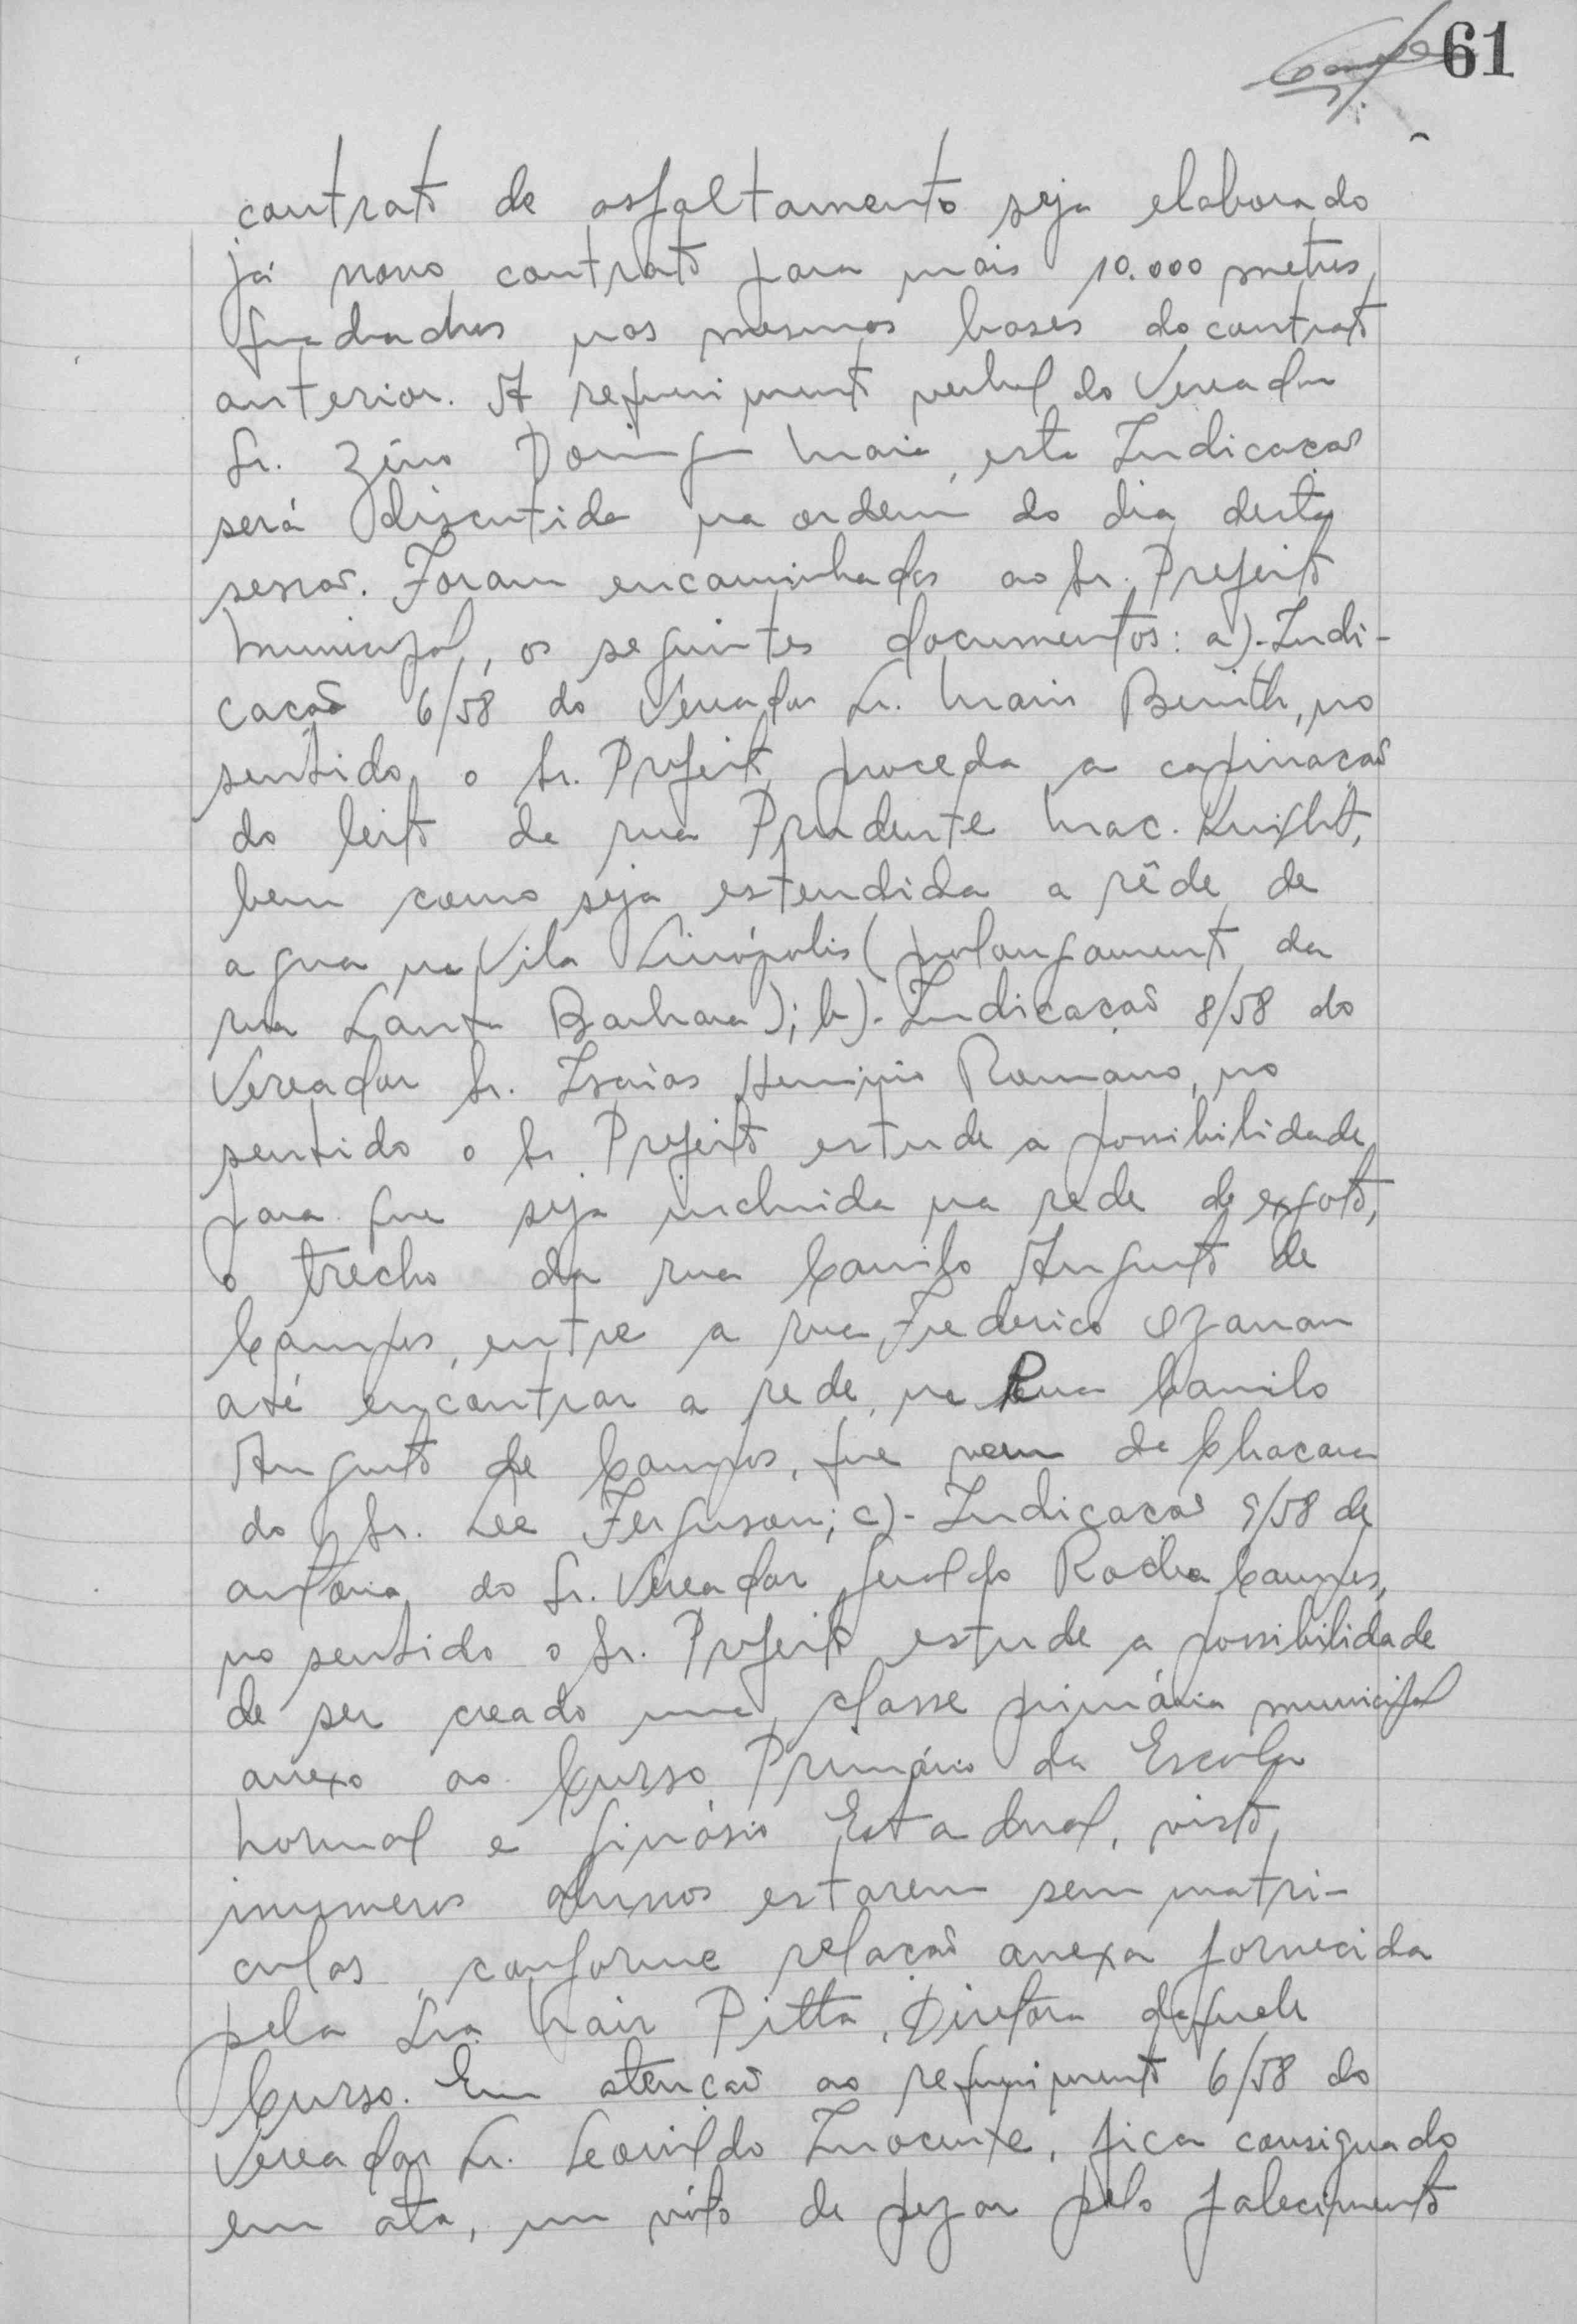 61
contrato de asfaltamento seja elaborado
já novo contrato para mais 10.000 metros
quadrados nas mesmas bases do contrato
anterior. A requerimento verbal do Vereador
Sr. Zéno Maia, esta Indicação
será discutida na ordem do dia desta
sessão. Foram encaminhados ao Sr. Prefeito
Municipal, os seguintes documentos: a)-Indi-
cação 6/58 do Vereador Sr. no
sentido o Sr. Prefeito proceda a capinação
do leito da rua Prudente Mac. Knight,
bem como seja estendida a rêde de
agua na Vila Linópolis (prolongamento da
rua Santa Barbara); b)-Indicação 8/58 do
Vereador Sr. Isaias Herminio Romano, no
sentido o Sr. Prefeito estude a possibilidade
para que seja incluida na rede de exgoto,
o trecho da rua Camilo Augusto de
Campos, entre a rua Frederico Ozanan
até encontrar a rede, na Rua Camilo
Augusto de Campos, que vem da Chacara
do Sr. Lee Ferguson; c)-Indicação 9/58 de
autoria do Sr. Vereador Geraldo Rocha Campos,
no sentido o Sr. Prefeito estude a possibilidade
de ser creado uma classe primária municipal
anexo ao Curso Primário da Escola
Normal e Ginásio Estadual, visto
inumeros alunos estarem sem matri-
culas, conforme relação anexa fornecida
pela Sra. Nair Pitta, Diretora daquele
Curso. Em atenção ao requerimento 6/58 do
Vereador Sr. Leovildo Inocente, fica consignado
em ata, um voto de pezar pelo falecimento